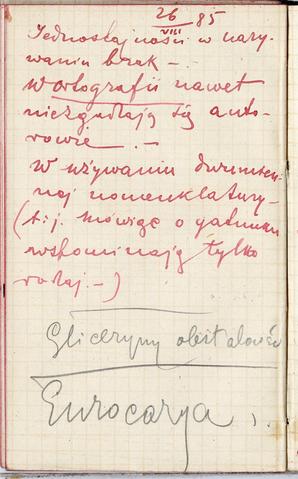 26/VIII 85
Jednostajności w nazy-
waniu brak –
w ortografii nawet
niezgadzają się auto-
rowie –. –
W używaniu dwuimien-
nej nomenklatury –
(t. j. mówiąc o gatunku
wspominają tylko
rodzaj. –)
Gliceryny obstalować
Eurocarya